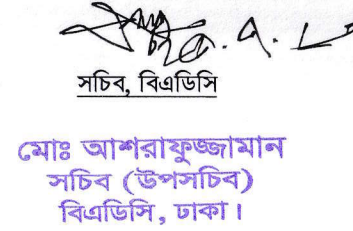 সচিব, বিএডিসি
মোঃ আশরাফুজ্জামান
সচিব (উপসচিব)
বিএডিসি, ঢাকা।